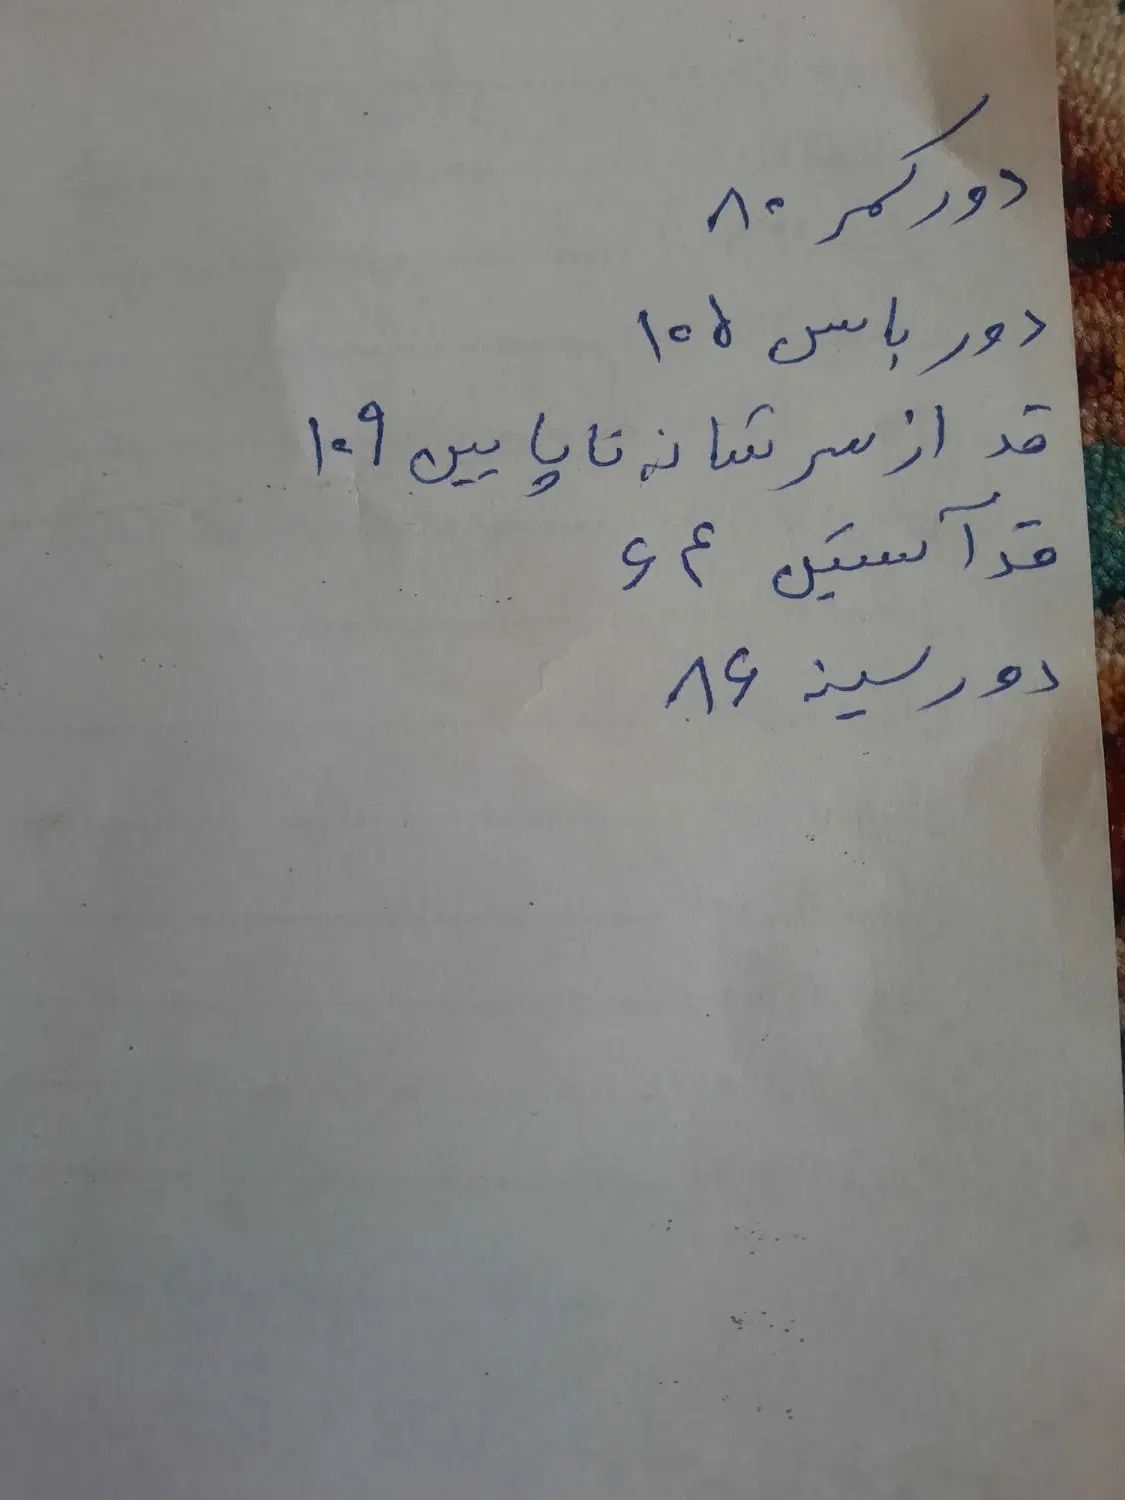 دور کمر ۸۰
دور باسن ۱۰۵
قد از سر شانه تا پایین ۱۰۹
قد آستین ۶۴
دور سینه ۸۶